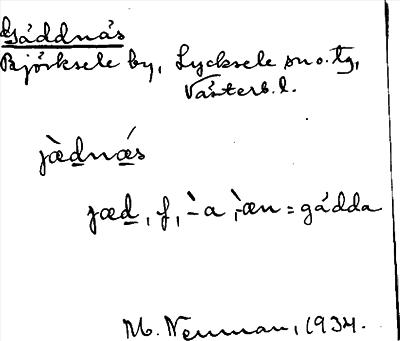 Gäddnäs
Björksele by, Lycksele sn o. tg,
Västerb. l.
jæ̀dnǽs
jæd, f, -̀a, -̀æn = gädda
M. Neuman, 1934.